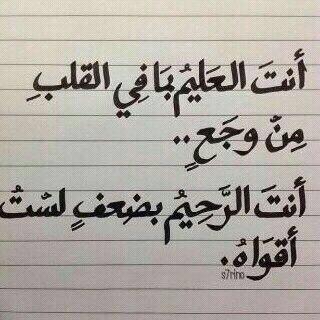 أنتَ العَليمُ بمَا فِي القلبِ
مِنْ وجَعٍ..
أنتَ الرَّحِيمُ بضِعفٍ لسْتُ
أقوَاهُ.
s7r1no